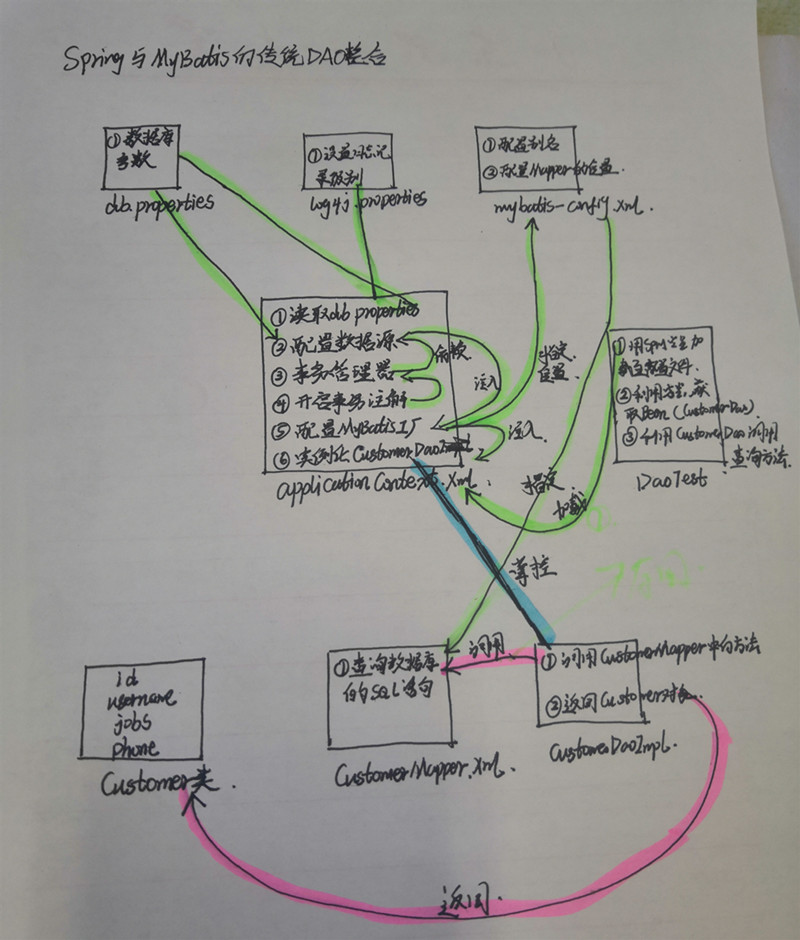 Spring与MyBatis的传统DAO整合
①数据库
参数
db.properties
①设置日志记
录级别
log4j.properties
①配置别名
②配置Mapper的位置.
mybatis-config.xml.
①读取db properties
②配置数据源
③事务管理器
④开启事务注解
⑤配置MyBatis工厂
⑥实例化CustomerDaoImpl
applicationContext.xml.
依赖
注入
注入
指定
位置
指定
加载
①用Spring容器加
载配置文件.
②利用方法获
取Bean (CustomerDao)
③利用CustomerDao调用
查询方法.
DaoTest
掌控
调用
①查询数据库
的SQL语句
CustomerMapper.xml.
①调用CustomerMapper中的方法
②返回Customer对象
CustomerDaoImpl.
id
username
jobs
phone
Customer类.
返回.